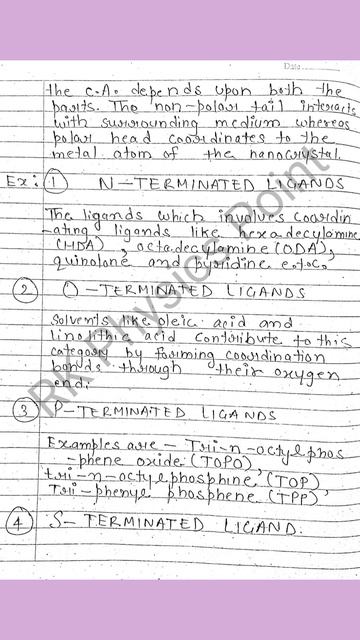 Date
the c.A. depends upon both the
parts. The non-polar tail interacts
with surrounding medium whereas
polar head coordinates to the
metal atom of the nanocrystal.
Ex: ① N-TERMINATED LIGANDS
The ligands which involves coordin
-ating ligands like hexadecylamine
(HDA), octadecylamine (ODA),
quinolone and pyridine e.t.c.
② O-TERMINATED LIGANDS
Solvents like oleic acid and
linolthic acid contribute to this
category by forming coordination
bonds through their oxygen
end.
③ P-TERMINATED LIGANDS
Examples are - Tri-n-octylphos
-phene oxide (TOPO),
tri-n-octylphosphine (TOP)
Tri-phenyl phosphene (TPP)
④ S-TERMINATED LIGAND.
RK Physics Point